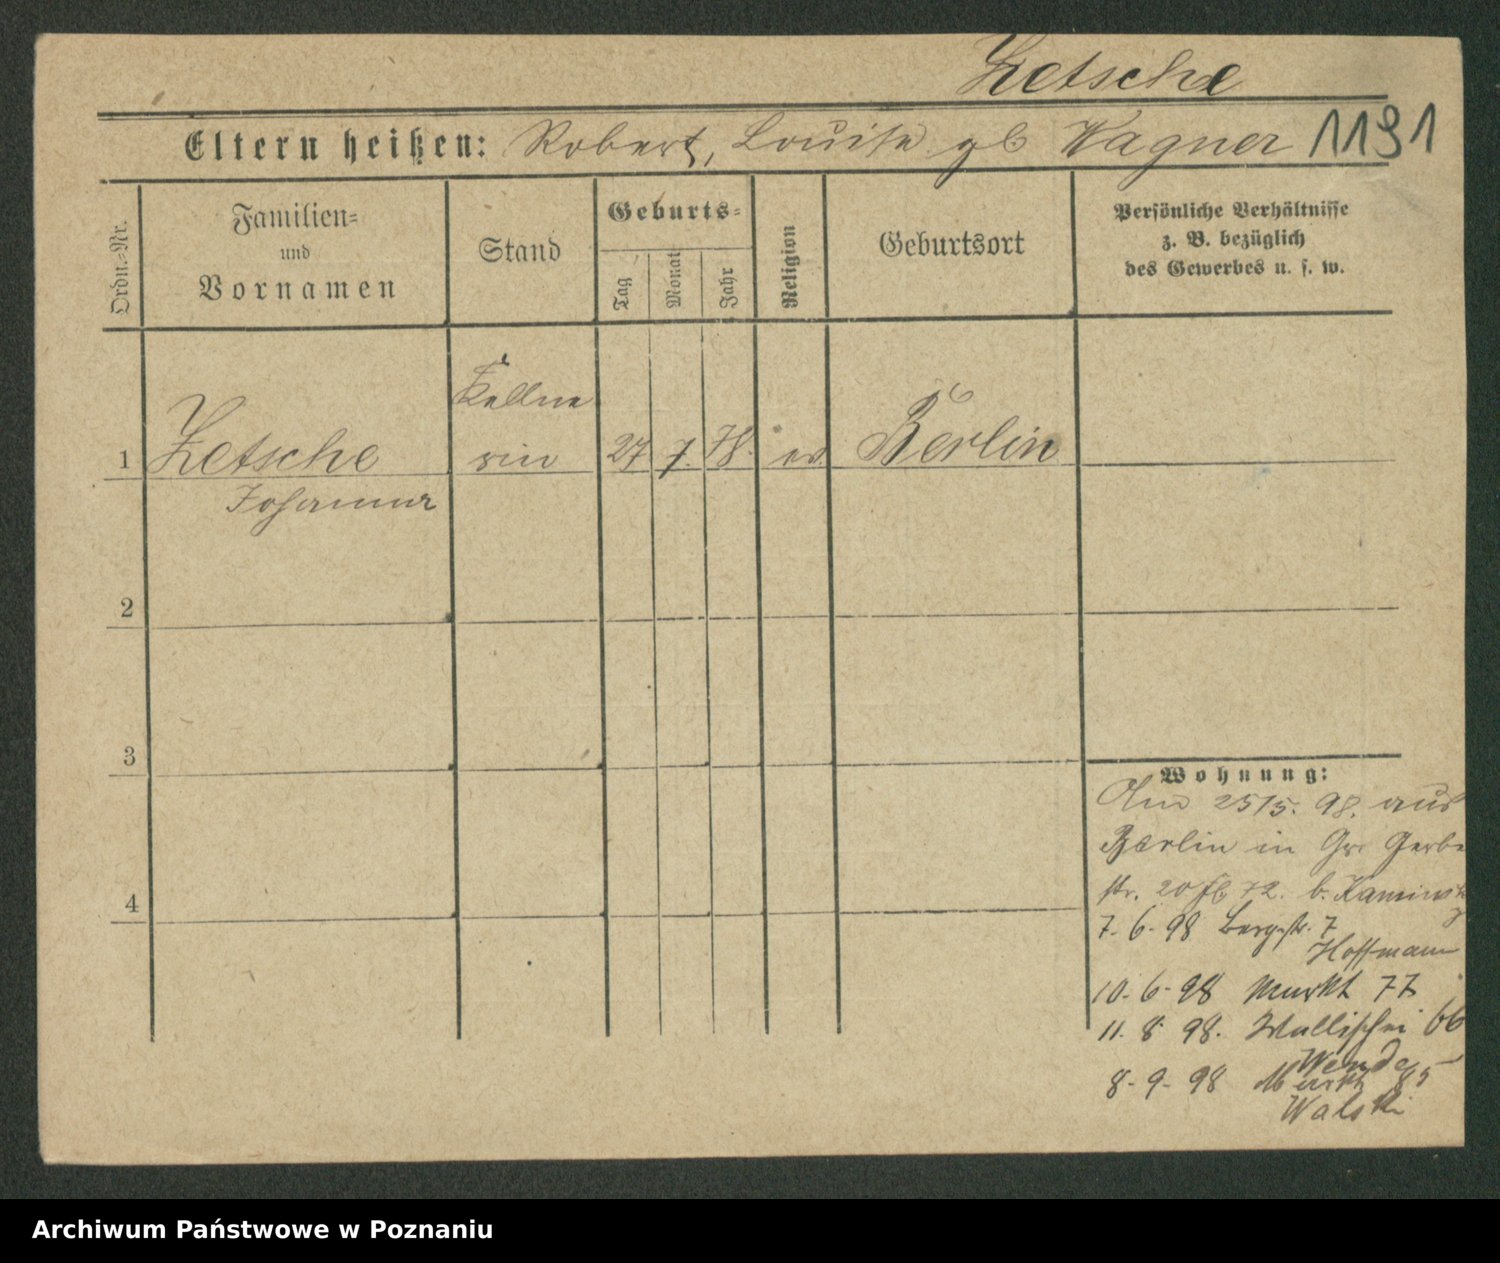 Zetsche
Eltern heißen: Robert, Louise gb Wagner 1191
Ordn.-Nr.
Familien-
und
Vornamen
Stand
Geburts-
Tag
Monat
Jahr
Religion
Geburtsort
Persönliche Verhältnisse
z. B. bezüglich
des Gewerbes u. s. w.
1 Zetsche
Johanna
Kellne
rin
27 7. 78. ev Berlin
2
3
4
Wohnung:
Am 25/5. 98. aus
Berlin in Gr. Gerbe
str. 20 b.
7. 6. 98 Bergstr. 7
Hoffmann
10. 6. 98 Markt 77
11. 8. 98. Wallischei 66
Wende
8. 9. 98 Markt 85
Walski
Archiwum Państwowe w Poznaniu